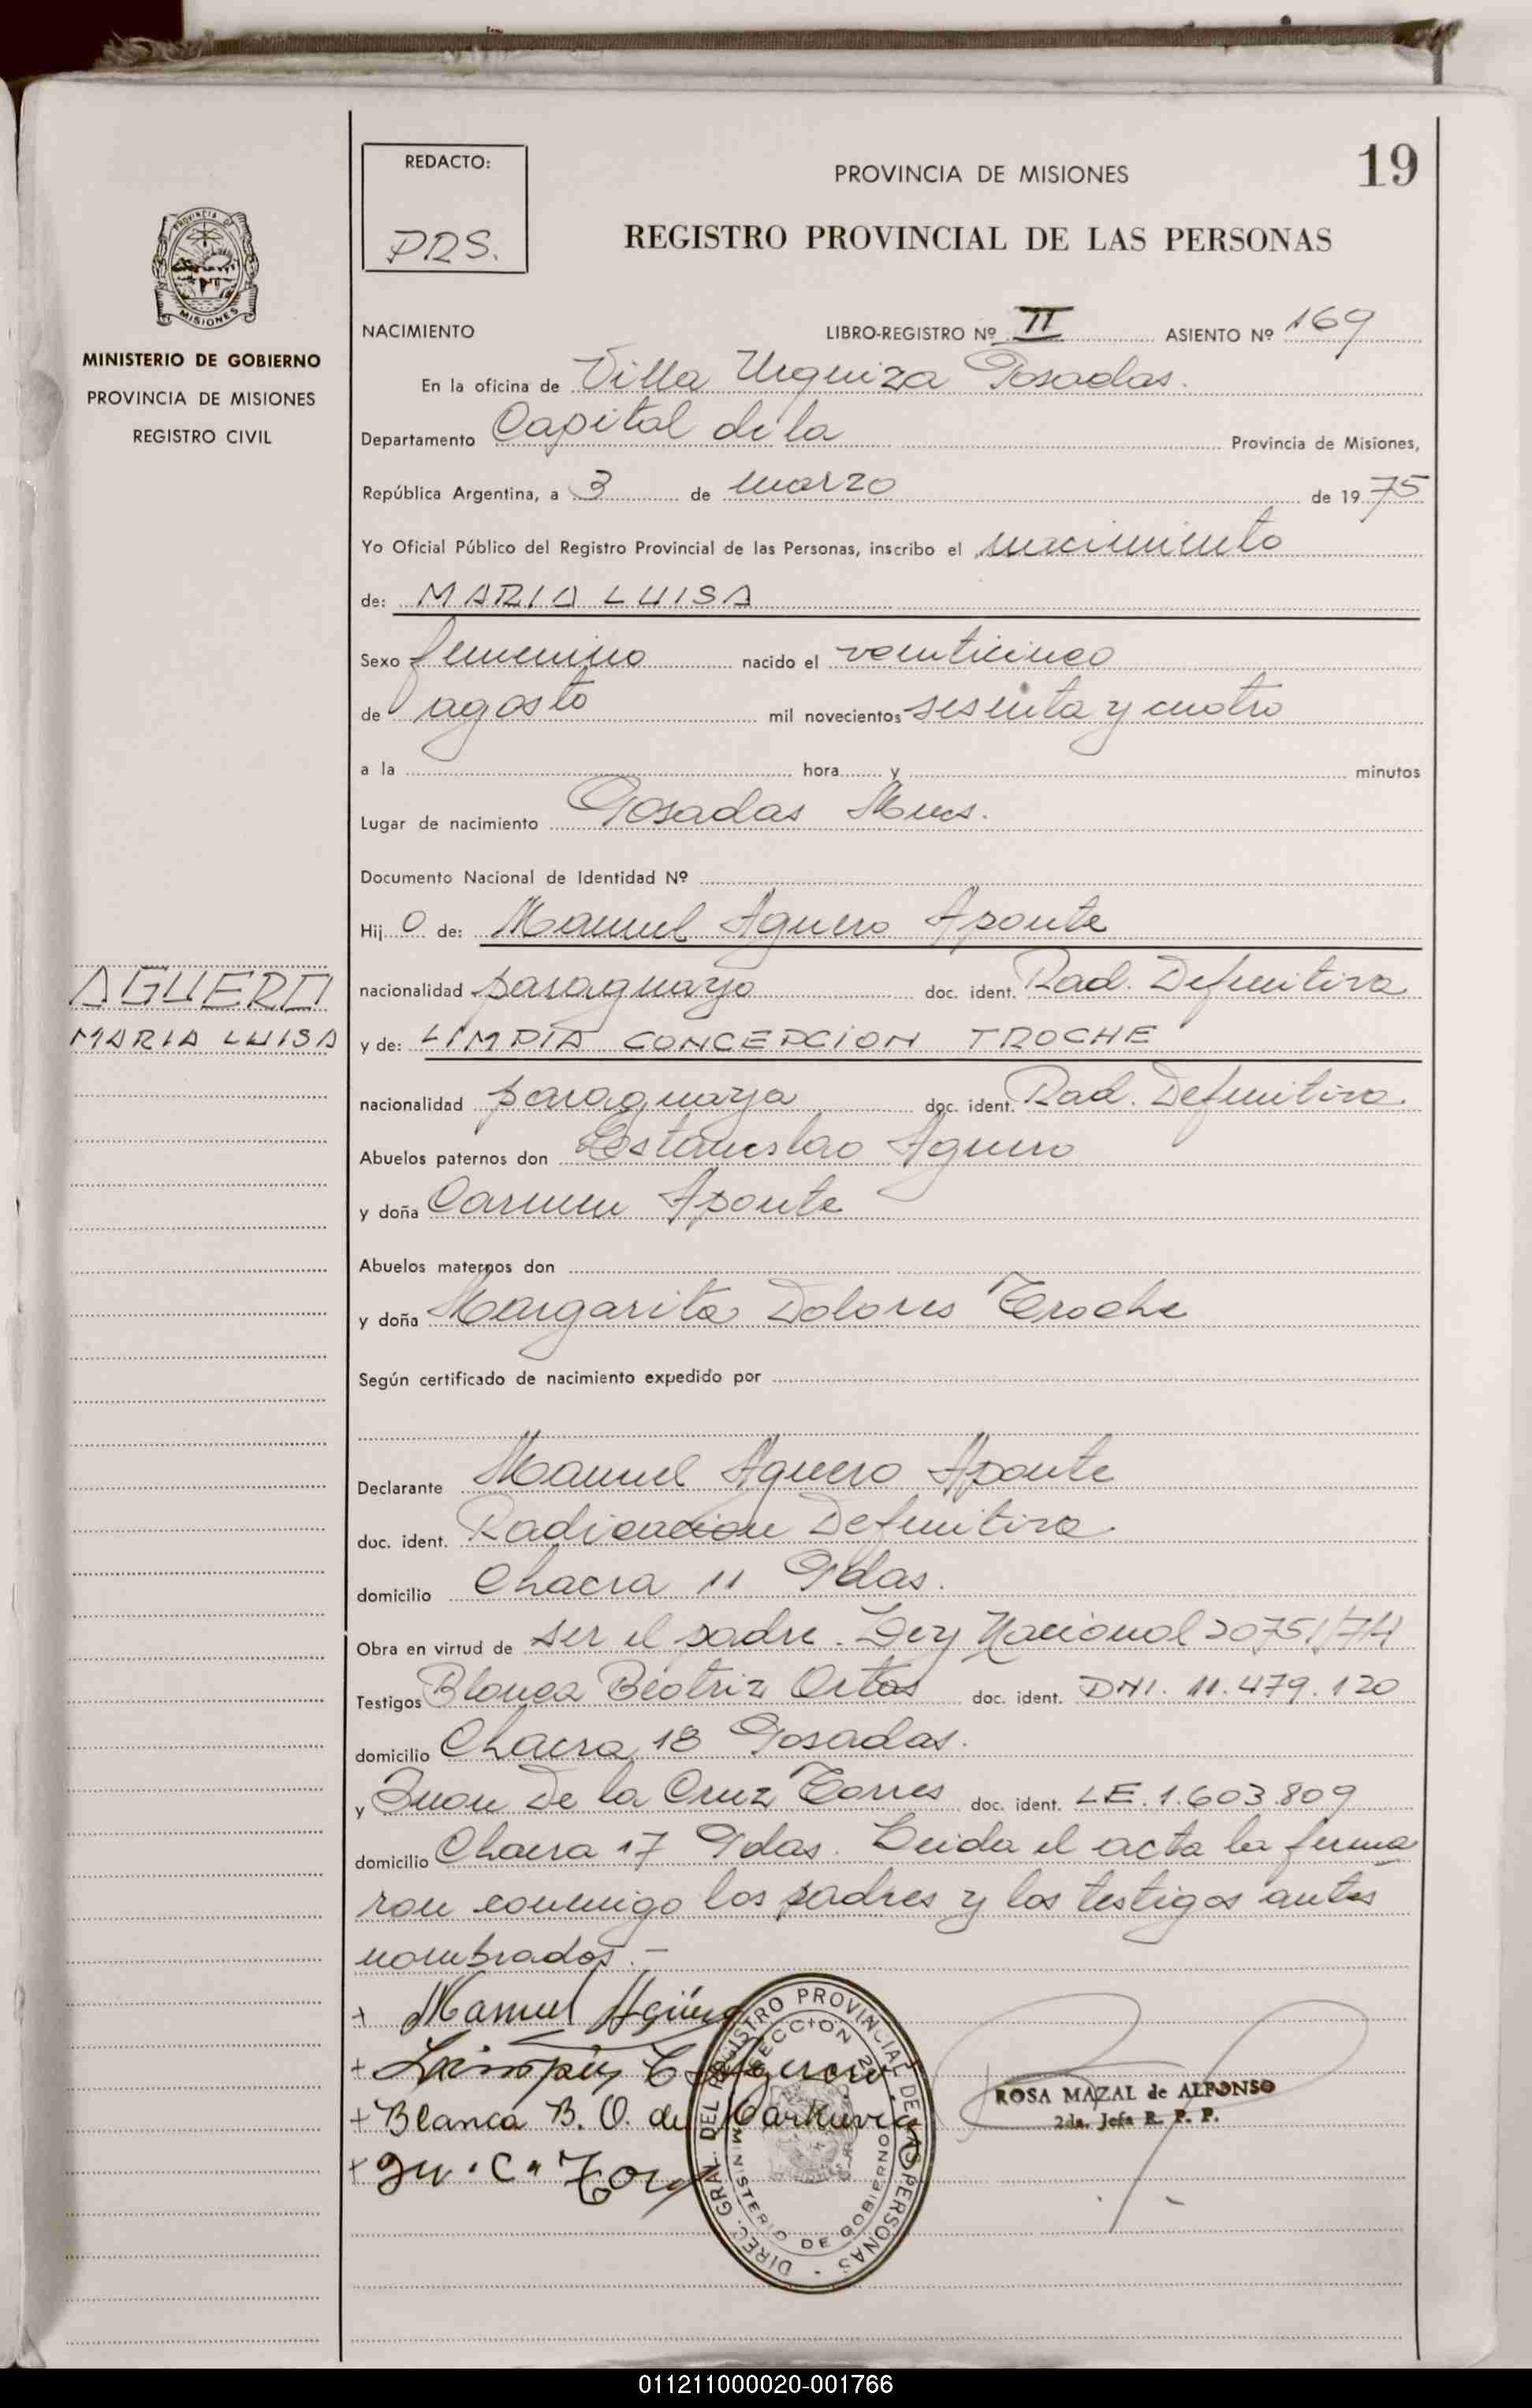 REDACTO:
PRS.
PROVINCIA DE MISIONES
19
REGISTRO PROVINCIAL DE LAS PERSONAS
PROVINCIA DE
MISIONES
MINISTERIO DE GOBIERNO
PROVINCIA DE MISIONES
REGISTRO CIVIL
NACIMIENTO LIBRO-REGISTRO Nº II ASIENTO Nº 169
En la oficina de Villa Urquiza Posadas.
Departamento Capital de la Provincia de Misiones,
República Argentina, a 3 de marzo de 1975
Yo Oficial Público del Registro Provincial de las Personas, inscribo el nacimiento
de: MARIA LUISA
Sexo femenino nacido el veinticinco
de agosto mil novecientos sesenta y cuatro
a la hora y minutos
Lugar de nacimiento Posadas Mnes.
Documento Nacional de Identidad Nº
Hij O de: Manuel Aguero Aponte
AGUERO
MARIA LUISA
nacionalidad paraguayo doc. ident. Rad. Definitiva
y de: LIMPIA CONCEPCION TROCHE
nacionalidad paraguaya doc. ident. Rad. Definitiva.
Abuelos paternos don Estanislao Aguero
y doña Carmen Aponte
Abuelos maternos don
y doña Margarita Dolores Troche
Según certificado de nacimiento expedido por
Declarante Manuel Aguero Aponte
doc. ident. Radicacion Definitiva.
domicilio Chacra 11 Pdas.
Obra en virtud de ser el padre. Ley Nacional 20751/74
Testigos Blanca Beatriz doc. ident. DNI. 11.479.120
domicilio Chacra 18 Posadas.
y Juan De la Cruz Torres doc. ident. LE. 1.603.809
domicilio Chacra 17 Pdas. Leida el acta la firma
ron conmigo los padres y los testigos antes
nombrados.-
+ Manuel Agüero
+ C. Aguero
+ Blanca B. O. de
+ Ju. C. Torres
DIREC. GRAL. DEL REGISTRO PROVINCIAL DE LAS PERSONAS -
SECCION 2
MINISTERIO DE GOBIERNO
ROSA MAZAL de ALFONSO
2da. Jefa R. P. P.
011211000020-001766